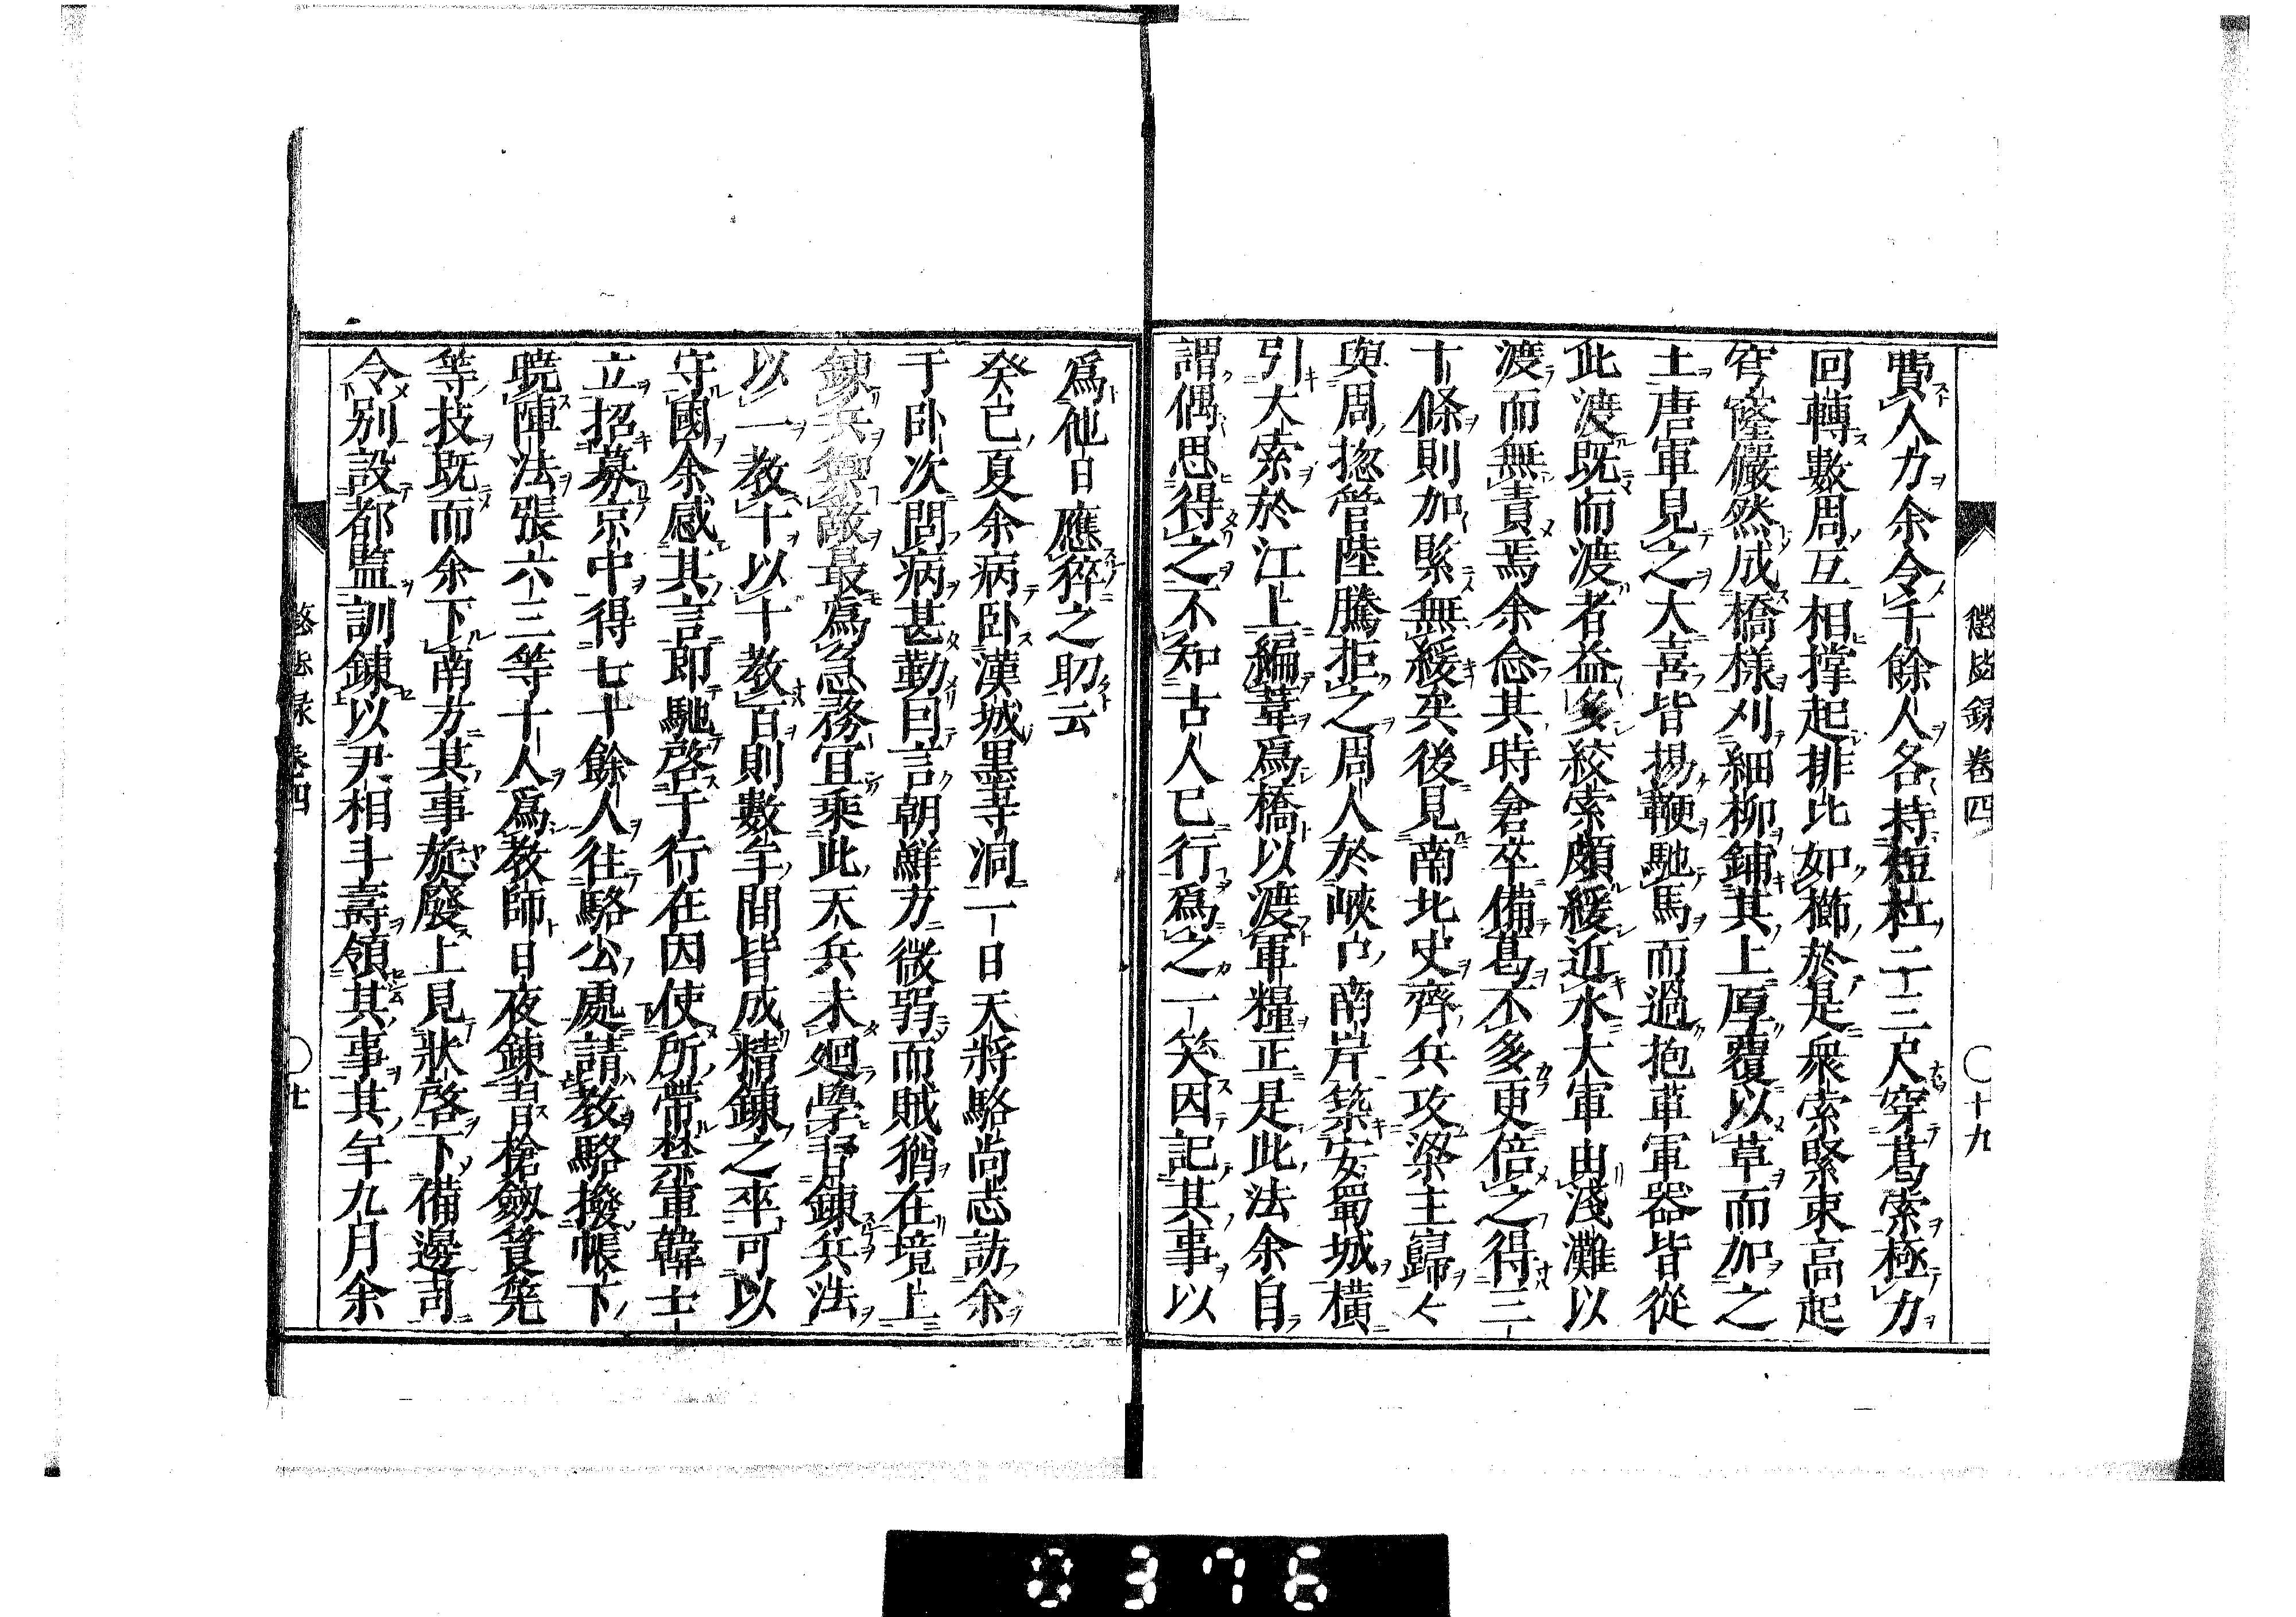 懲毖録 卷四 〇十九
費人力余令千餘人各持短杠二三尺穿葛索極力
回轉數周互相撑起排比如櫛於是衆索緊束高起
穹窿儼然成橋樣刈細柳鋪其上厚覆以草而加之
土唐軍見之大喜皆揚鞭馳馬而過抱車軍器皆從
此渡既而渡者益多絞索頗緩近水大軍由淺灘以
渡而無責焉余念其時倉卒備葛不多更倍之得三
十條則加緊無緩矣後見南北史齊兵攻梁主歸〻
與周揔管陸騰拒之周人於峽口南岸築安蜀城橫
引大索於江上編葦爲橋以渡軍糧正是此法余自
謂偶思得之不知古人已行爲之一笑因記其事以
爲他日應猝之助云
癸巳夏余病卧漢城墨寺洞一日天將駱尚志訪余
于卧次問病甚勤因言朝鮮方微弱而賊猶在境上
錬兵禦敵最爲急務宜乘此天兵未廻學習錬兵法
以一教十以十教百則數年間皆成精錬之卒可以
守國余感其言即馳啓于行在因使所帶禁軍韓士
立招募京中得七十餘人往駱公處請教駱撥帳下
曉陣法張六三等十人爲教師日夜錬習槍劔筤筅
等技既而余下南方其事旋廢上見狀啓下備邊司
令別設都監訓錬以尹相斗壽領其事其年九月余
懲毖録 卷四 〇廿
0376